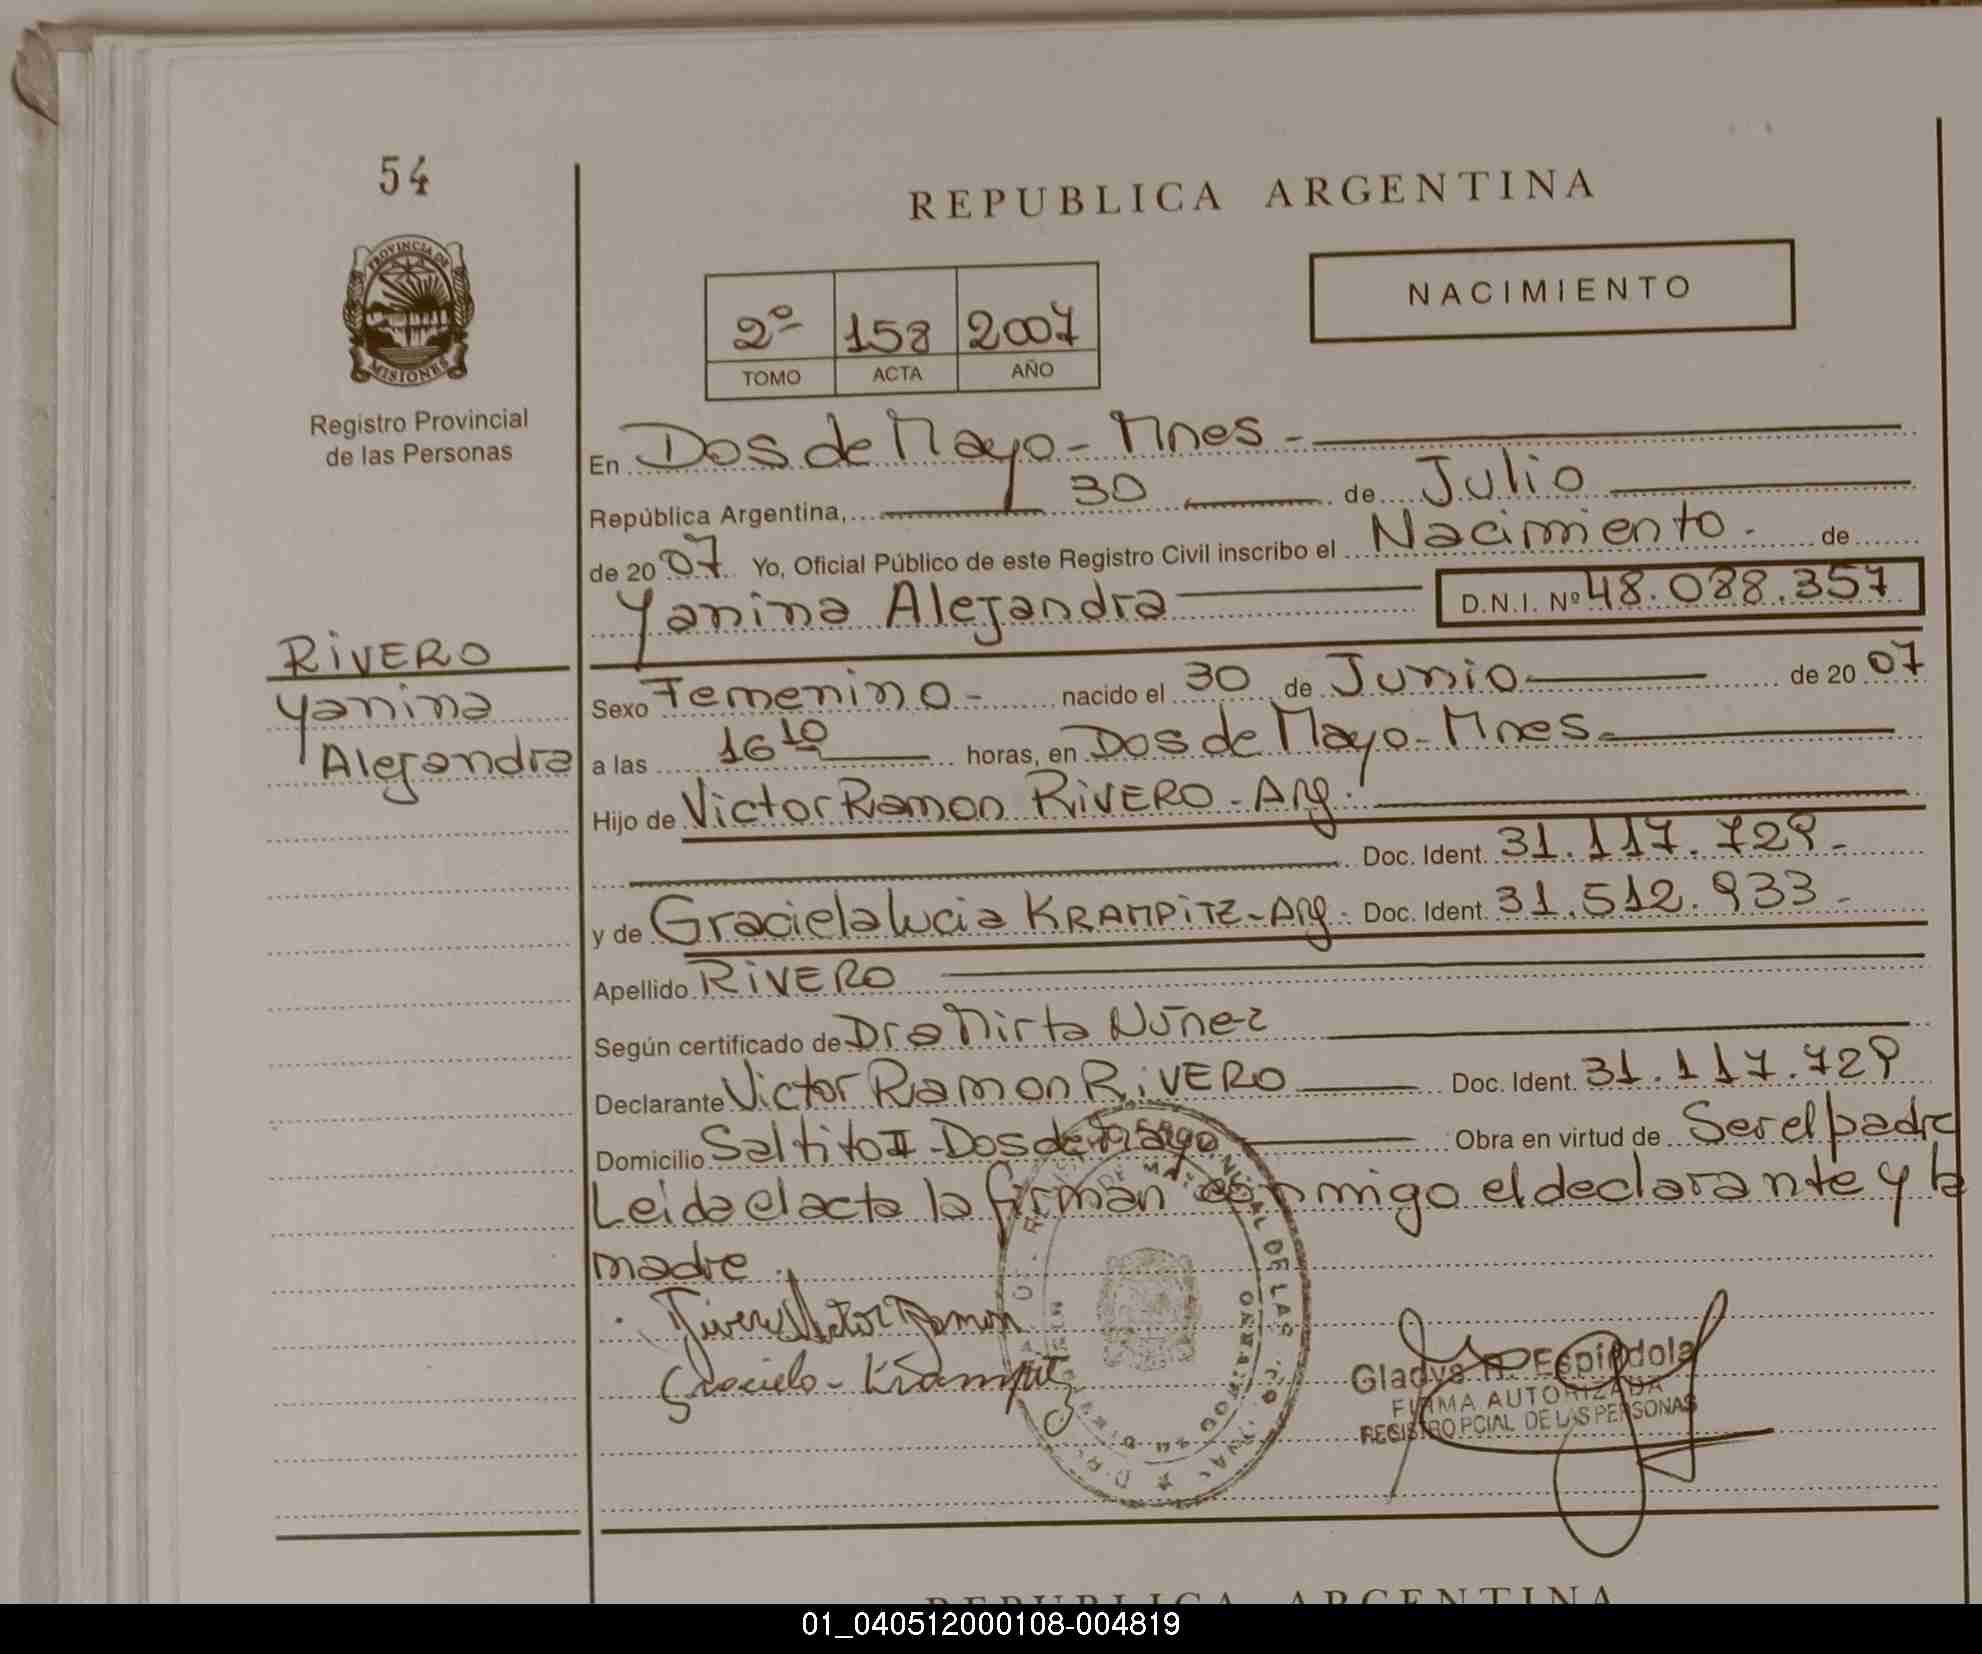 54
REPUBLICA ARGENTINA
PROVINCIA DE
MISIONES
Registro Provincial
de las Personas
NACIMIENTO
2º 158 2007
TOMO ACTA AÑO
En Dos de Mayo - Mnes -
República Argentina, 30 de Julio
de 20 07 Yo, Oficial Público de este Registro Civil inscribo el Nacimiento - de
Yanina Alejandra D.N.I. Nº 48.088.357
RIVERO
Yanina
Alejandra
Sexo Femenino - nacido el 30 de Junio de 20 07
a las 16 10 horas, en Dos de Mayo - Mnes.
Hijo de Victor Ramon RIVERO - Arg.
Doc. Ident. 31.117.729 -
y de Graciela Lucia KRAMPITZ - Arg. Doc. Ident. 31.512.933 -
Apellido RIVERO
Según certificado de Dra Mirta Núñez
Declarante Victor Ramon RIVERO Doc. Ident. 31.117.729
Domicilio Saltito II - Dos de Mayo Obra en virtud de Ser el padre
Leida el acta la firman conmigo el declarante y la
madre.
Rivero Victor Ramon
Graciela - Krampitz
Gladys Espíndola
FIRMA AUTORIZADA
REGISTRO PCIAL DE LAS PERSONAS
REPUBLICA ARGENTINA
01_040512000108-004819